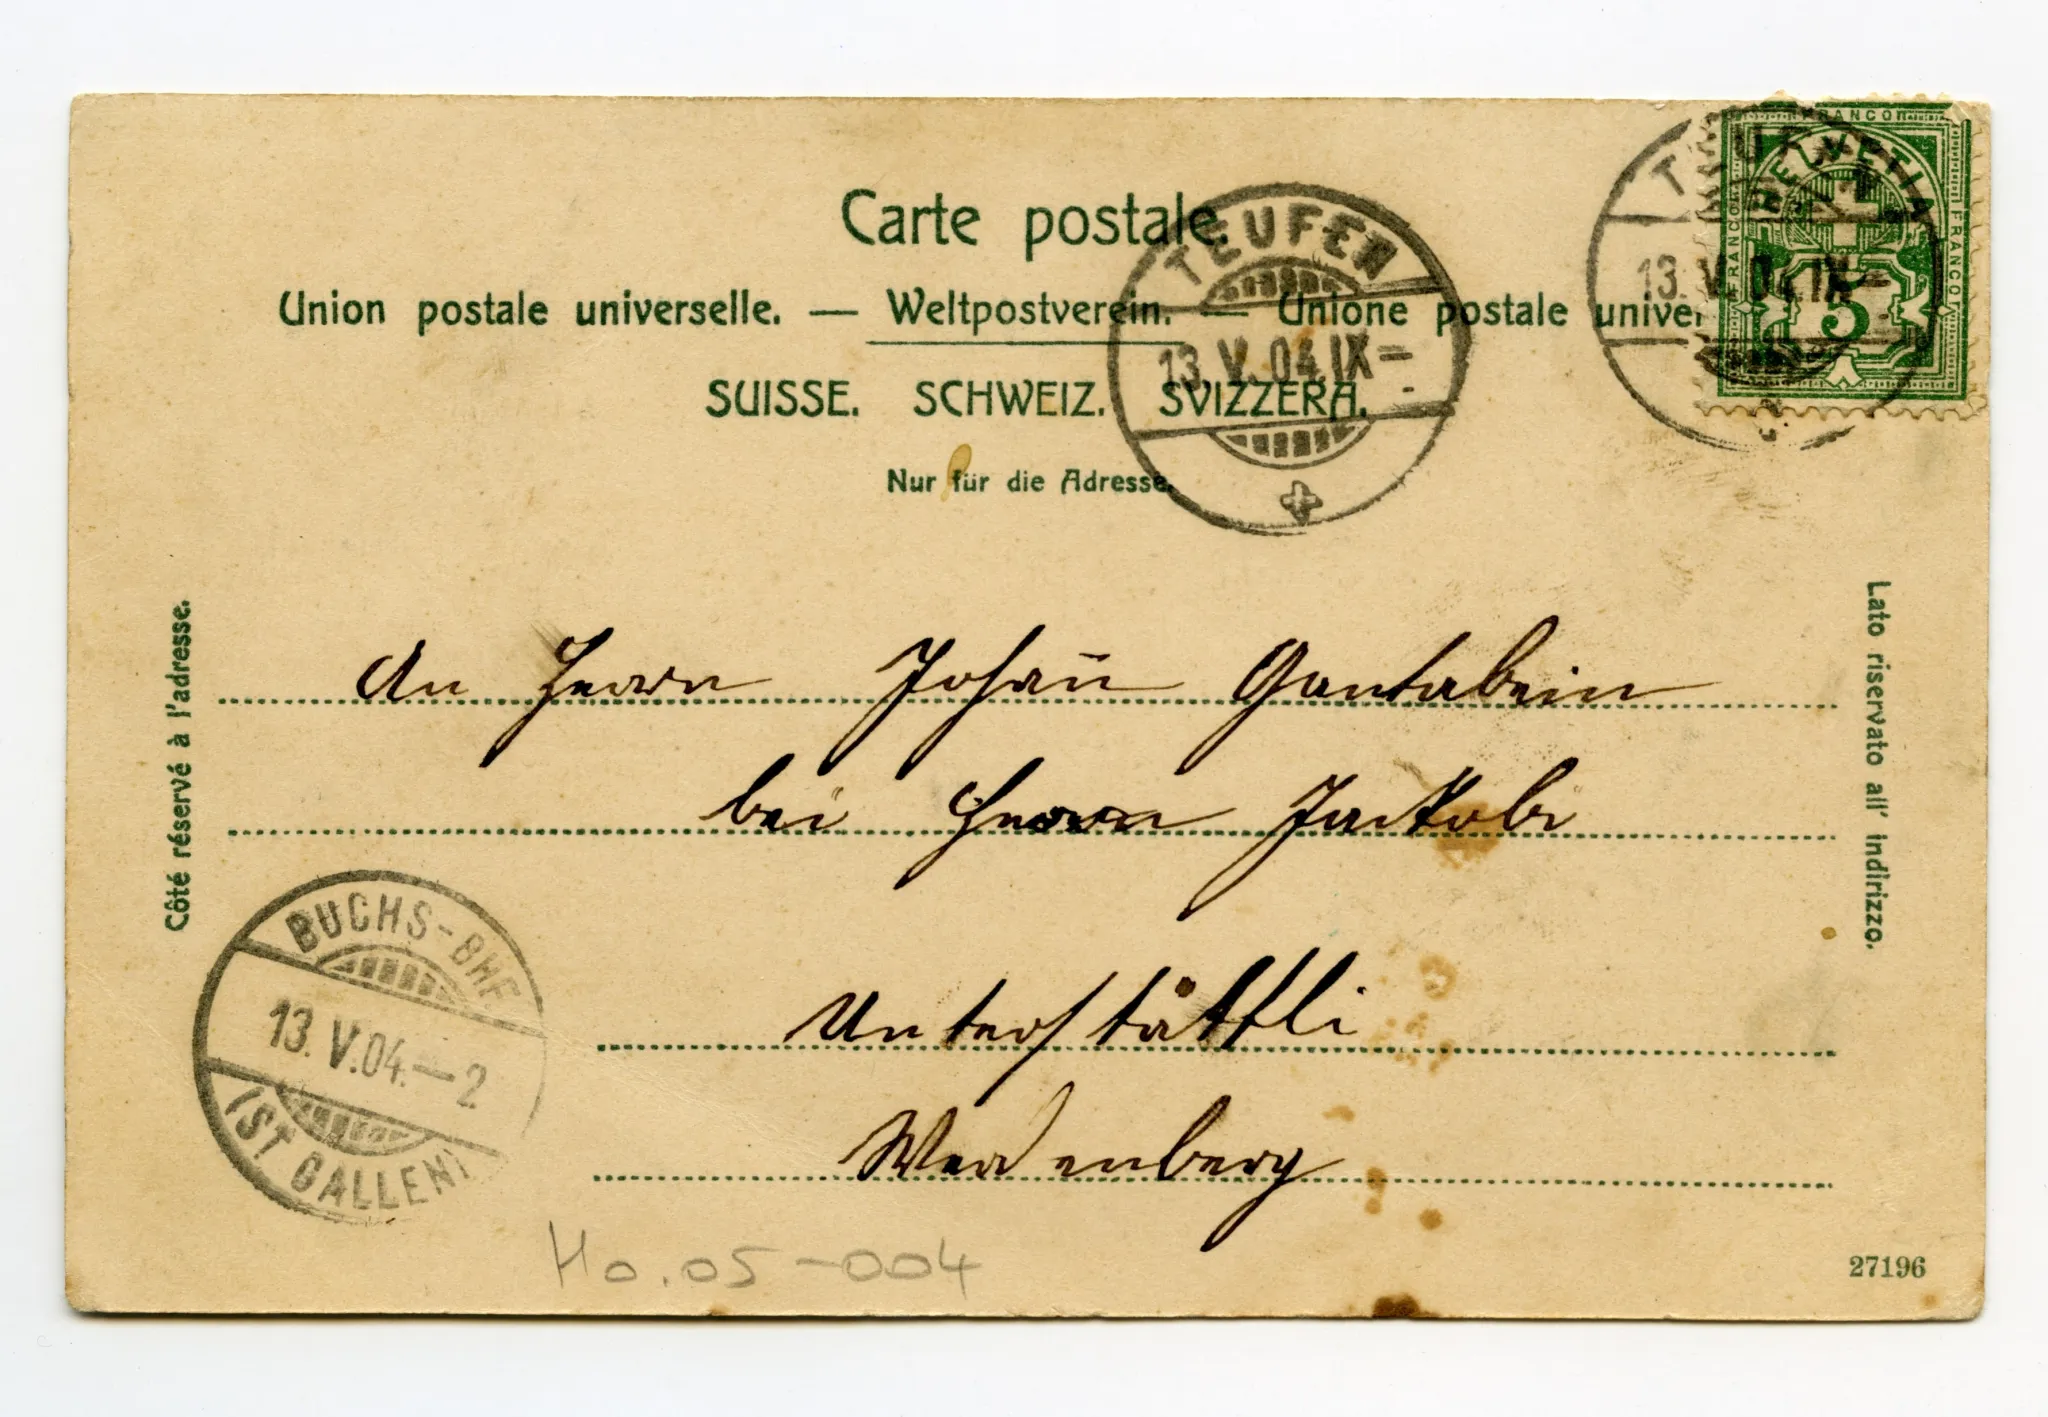 Carte postale.
Union postale universelle. — Weltpostverein. — Unione postale univer
SUISSE. SCHWEIZ. SVIZZERA.
Nur für die Adresse.
TEUFEN
13.V.04.IX–
FRANCO
HELVETIA
FRANCO
FRANCO
5
13.V.04.IX–
Côté réservé à l'adresse.
Lato riservato all' indirizzo.
An Herrn Johan̄ Gantenbein
bei Herrn Jakob
Unterstättli
Werdenberg
BUCHS-BHF
13.V.04.–2
(ST GALLEN)
Ho.05-004
27196